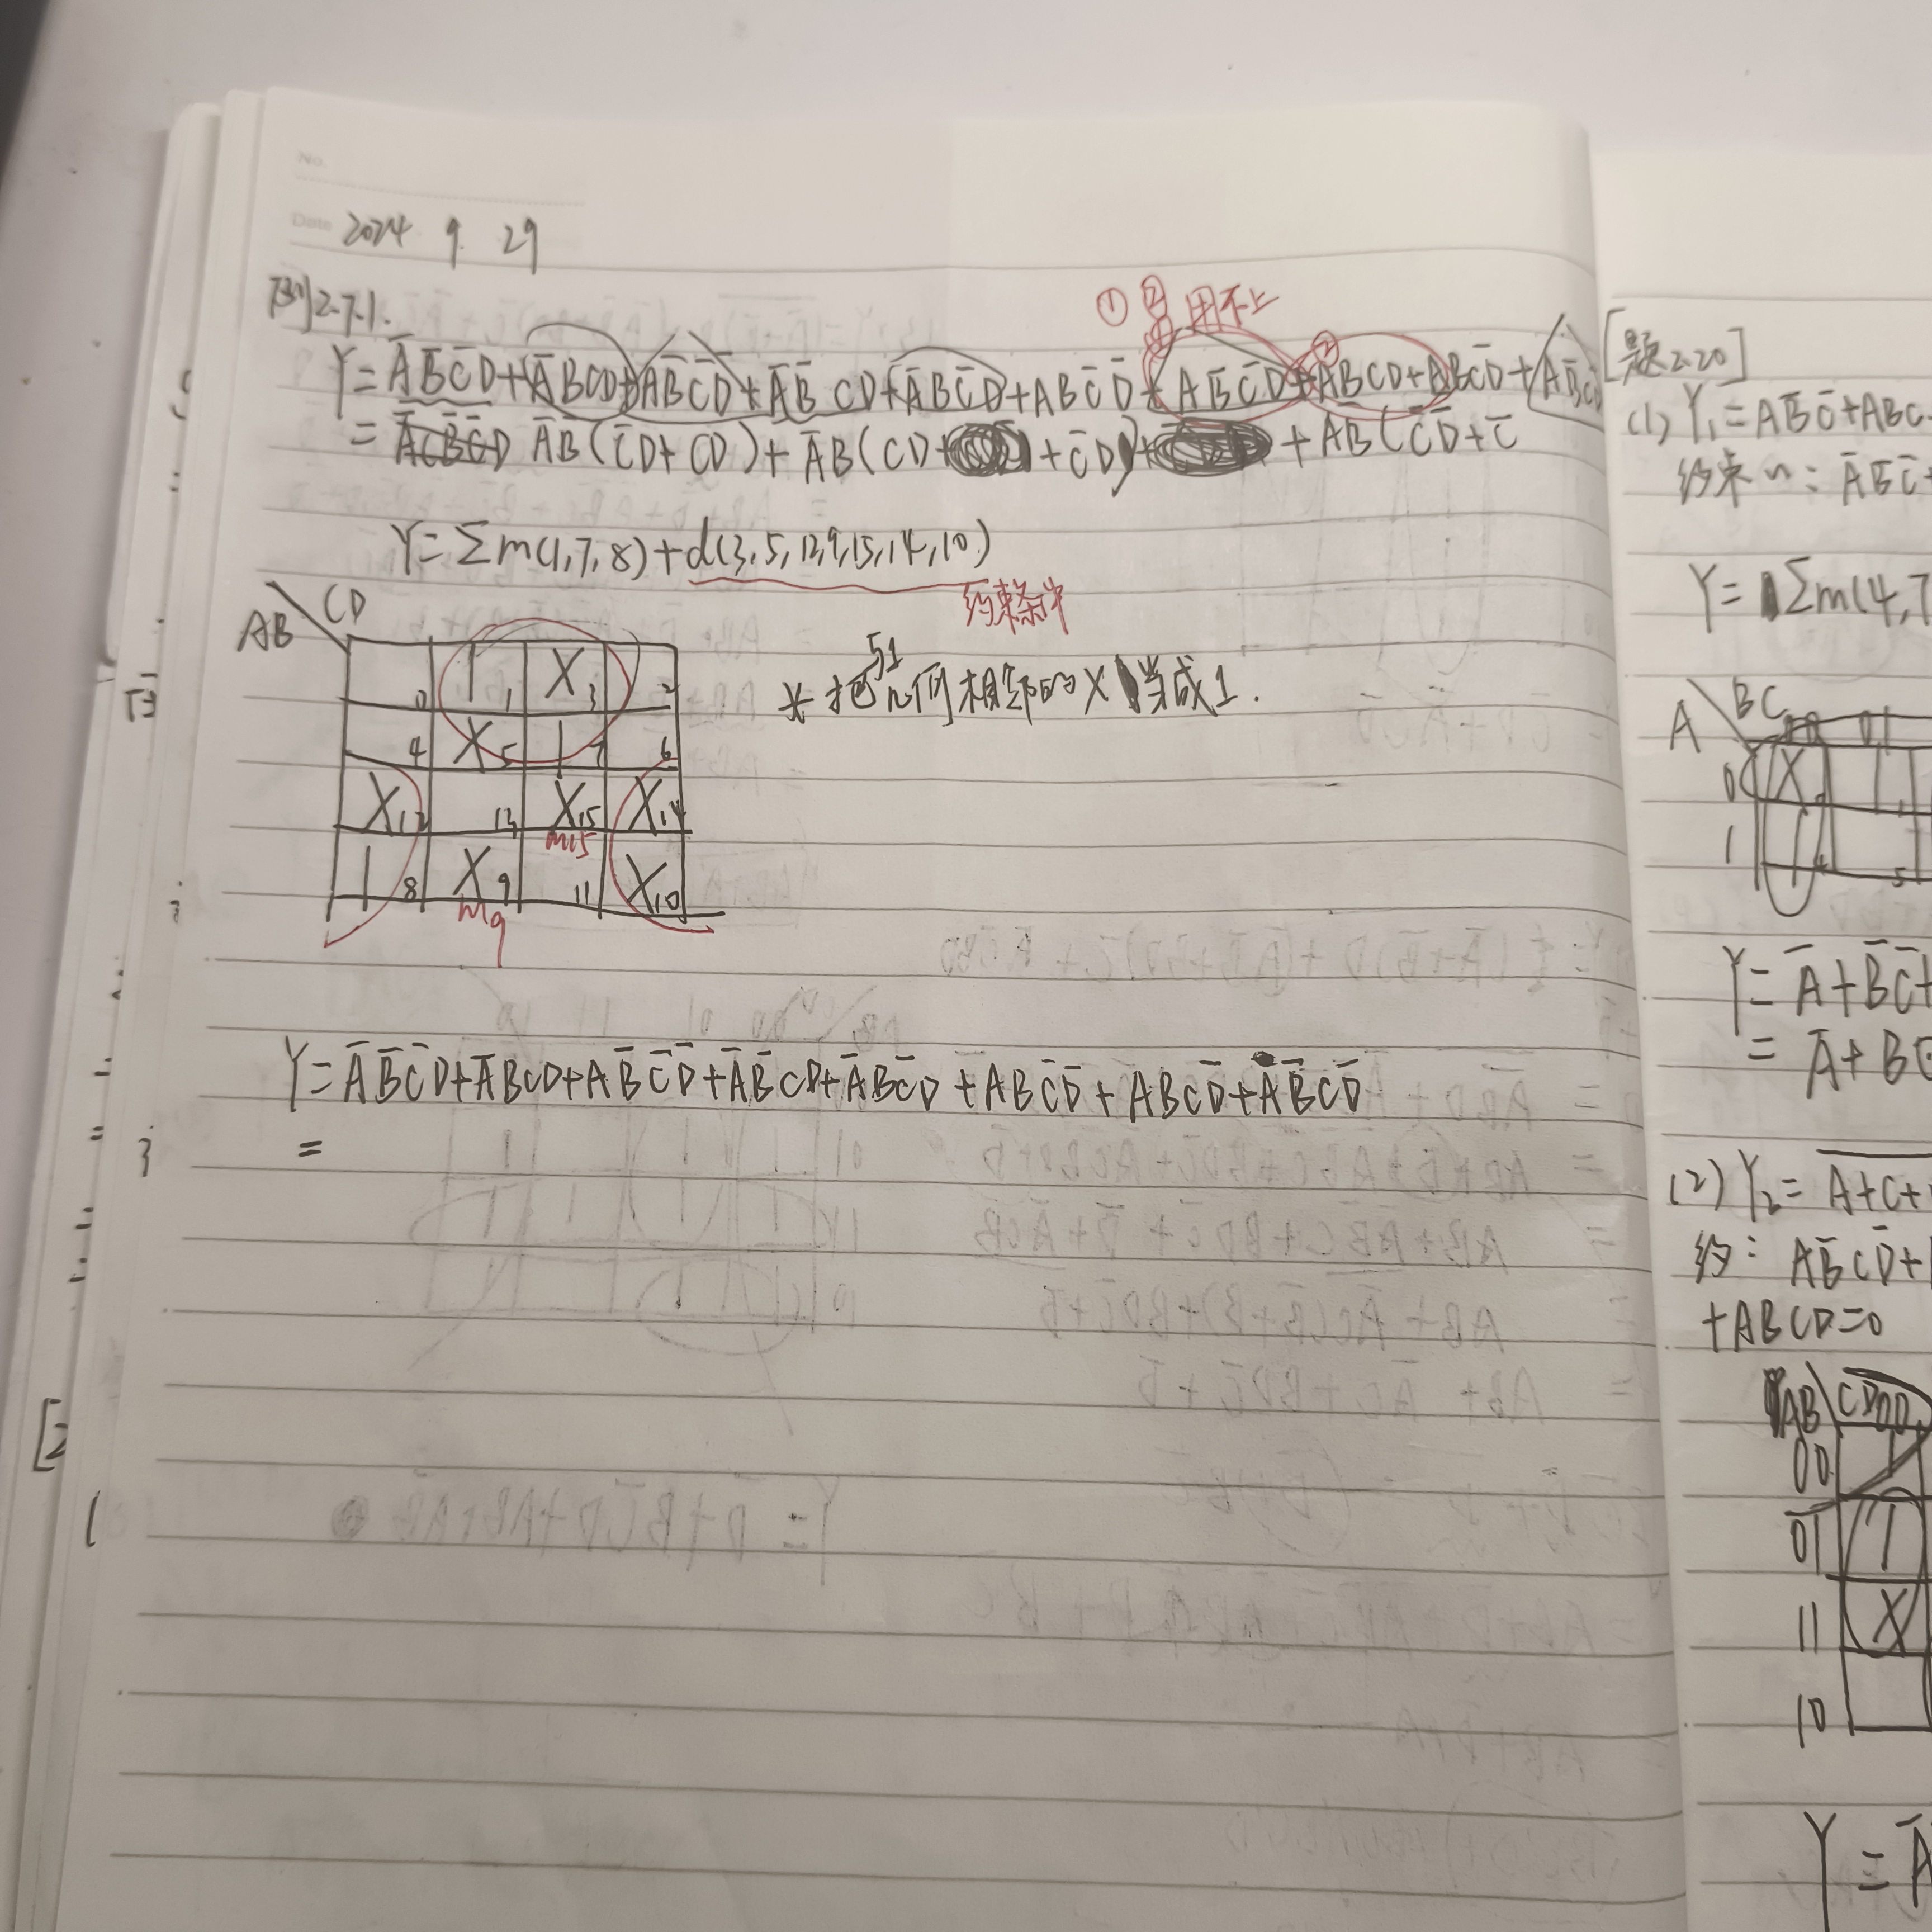 No.
Date 2024 9. 29
例2.7.1.
① ② 用不上
Y=A̅B̅C̅D+A̅BCD+AB̅C̅D̅+A̅B̅CD+A̅BC̅D+ABC̅D̅+AB̅C̅D+ABCD+ABCD̅+AB̅CD̅
= A̅B̅(C̅D+CD)+A̅B(CD+C̅D)+AB(C̅D̅+C
Y=Σm(1,7,8)+d(3,5,12,9,15,14,10)
约束条件
AB CD
0 1 1 X 3 2
* 把与1几何相邻的X当成1.
4 X 5 1 7 6
X 12 13 X 15 X 14
m15
1 8 X 9 11 X 10
m9
Y=A̅B̅C̅D+A̅BCD+AB̅C̅D̅+A̅B̅CD+A̅BC̅D+ABC̅D̅+ABCD̅+AB̅CD̅
=
[题2.20]
(1) Y₁=AB̅C̅+ABC
约束~: A̅B̅C̅+
Y=Σm(4,7
A BC 00 01
0 X 0 1 1
1 1 4 5
Y=A̅+B̅C̅+
= A̅+B̅C̅
(2) Y₂=A+C+
约: AB̅CD̅+
+ABCD=0
AB CD 00
00 1
01 1
11 X
10
Y=A̅